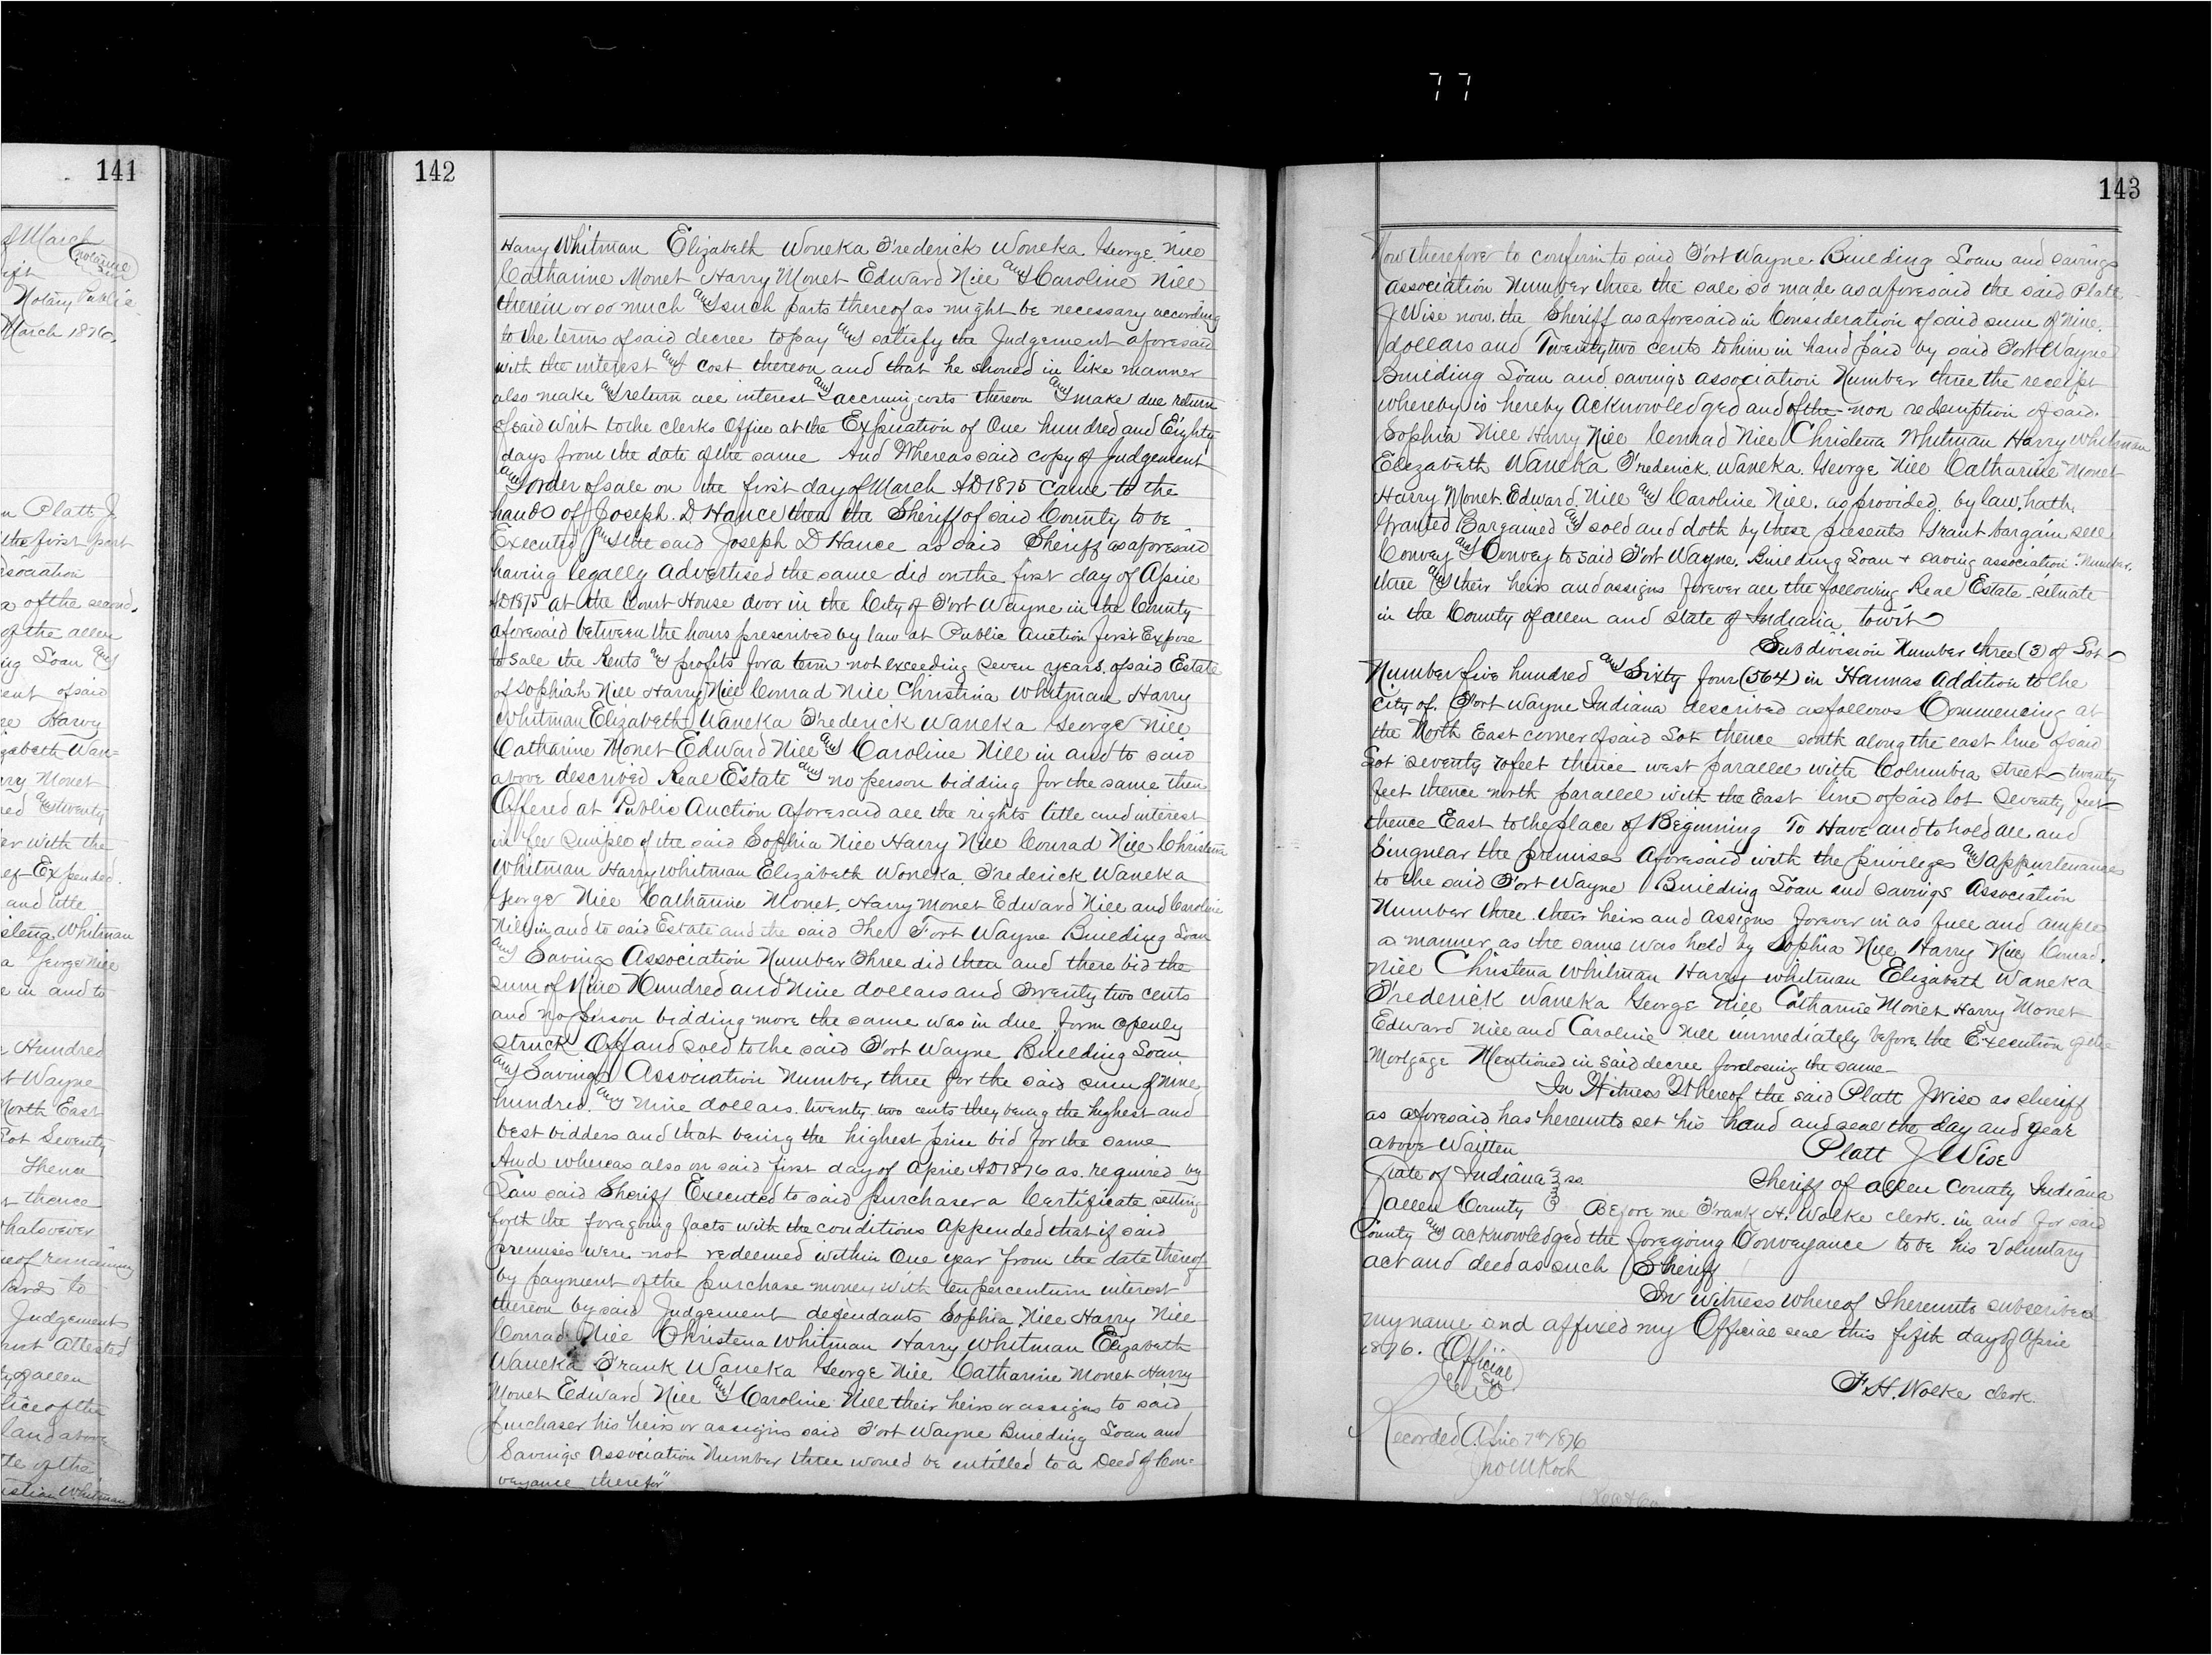 77
141
of March
Notarial
Notary Public
March 1876.
n Platt J
the first part
ssociation
a of the second.
of the allen
ing Loan and
ent of said
ne Harvy
izabeth Wan=
rry Monet
red and twenty
er with the
ef Expended.
and title
istena Whitman
a George Nill
e in and to
e Hundred
t Wayne
North East
Lot Seventy
Thence
thence
whatsoever
reof remaining
ards to
Judgements
nent attested
y of allen
lice of the
land above
te of the
istian Whitman
142
Harry Whitman Elizabeth Woneka Frederick Woneka George Nill
Catharine Monet Harry Monet Edward Nill and Caroline Nill
therein or so much and such parts thereof as might be necessary according
to the terms of said decree to pay and satisfy the Judgement aforesaid
with the interest and cost thereon and that he should in like manner
also make and return all interest and accruing costs thereon and make due return
of said Writ to the clerks Office at the Expiration of One hundred and Eighty
days from the date of the same And Whereas said copy of judgement
and order of sale on the first day of March AD 1875 came to the
hands of Joseph D. Hance then the Sheriff of said County to be
Executed and the said Joseph D Hance as said Sheriff as aforesaid
having legally advertised the same did on the first day of April
AD 1875 at the Court House door in the City of Fort Wayne in the County
aforesaid between the hours prescribed by law at Public auction first Expose
to sale the Rents and profits for a term not exceeding seven years of said Estate
of Sophiah Nill Harry Nill Conrad Nill Christina Whitman Harry
Whitman Elizabeth Waneka Frederick Waneka George Nill
Catharine Monet Edward Nill and Caroline Nill in and to said
above described Real Estate and no person bidding for the same then
Offered at Public Auction aforesaid all the rights title and interest
in fee simple of the said Sophia Nill Harry Nill Conrad Nill Christena
Whitman Harry Whitman Elizabeth Woneka Frederick Waneka
George Nill Catharine Monet, Harry Monet Edward Nill and Caroline
Nill in and to said Estate and the said The Fort Wayne Building Loan
and Savings Association Number Three did then and there bid the
sum of Nine Hundred and Nine dollars and Twenty two cents
and no person bidding more the same was in due form openly
struck Off and sold to the said Fort Wayne Building Loan
and Savings Association Number three for the said sum of nine
hundred and nine dollars twenty two cents they being the highest and
best bidders and that being the highest price bid for the same
And whereas also on said first day of April AD 1876 as required by
Law said Sheriff Executed to said purchaser a Certificate setting
forth the foregoing facts with the conditions appended that if said
premises were not redeemed within One year from the date thereof
by payment of the purchase money with ten percentum interest
thereon by said Judgement defendants Sophia Nill Harry Nill
Conrad Nill Christena Whitman Harry Whitman Elizabeth
Waneka Frank Waneka George Nill Catharine Monet Harry
Monet Edward Nill and Caroline Nill their heirs or assigns to said
purchaser his heirs or assigns said Fort Wayne Building Loan and
Savings Association Number three would be entitled to a Deed of Con=
veyance therefor"
143
Now therefore to confirm to said Fort Wayne Building Loan and savings
association Number three the sale so made as aforesaid the said Platt
J Wise now the Sheriff as aforesaid in Consideration of said sum of Nine
dollars and Twenty two cents to him in hand paid by said Fort Wayne
Building Loan and savings association Number three the receipt
whereby is hereby Acknowledged and of the non redemption of said
Sophia Nill Harry Nill Conrad Nill Christena Whitman Harry Whitman
Elizabeth Waneka Frederick Waneka George Nill Catharine Monet
Harry Monet Edward Nill and Caroline Nill, as provided by law, hath
Granted Bargained and sold and doth by these presents Grant bargain sell
Convey and Convey to said Fort Wayne Building Loan + saving association Number
three and their heirs and assigns forever all the following Real Estate situate
in the County of allen and state of Indiana towit
Subdivision Number three (3) of Lot
Number five hundred and Sixty four (564) in Hannas Addition to the
City of Fort Wayne Indiana described as follows Commencing at
the North East corner of said Lot thence south along the east line of said
Lot seventy 70 feet thence west parallel with Columbia street twenty
feet thence north parallel with the East line of said lot Seventy feet
thence East to the place of Beginning To Have and to hold all and
Singular the premises aforesaid with the privileges and appurtenances
to the said Fort Wayne Building Loan and Savings Association
Number three their heirs and assigns forever in as full and ample
a manner as the same was held by Sophia Nill, Harry Nill, Conrad
Nill Christena Whitman Harry Whitman Elizabeth Waneka
Frederick Waneka George Nill Catharine Monet Harry Monet
Edward Nill and Caroline Nill immediately before the Execution of the
Mortgage Mentioned in said decree forclosing the same
In Witness Whereof the said Platt J Wise as sheriff
as aforesaid has hereunto set his hand and seal the day and year
above Waitten Platt J Wise
State of Indiana } ss Sheriff of allen County Indiana
allen County } Before me Frank H. Wolke clerk in and for said
County and acknowledged the foregoing Conveyance to be his Voluntary
act and deed as such Sheriff
In witness whereof I hereunto subscribed
my name and affixed my Official seal this fifth day of April
1876. Official
F. H. Wolke clerk
Recorded April 7th 1876
Jno M Koch